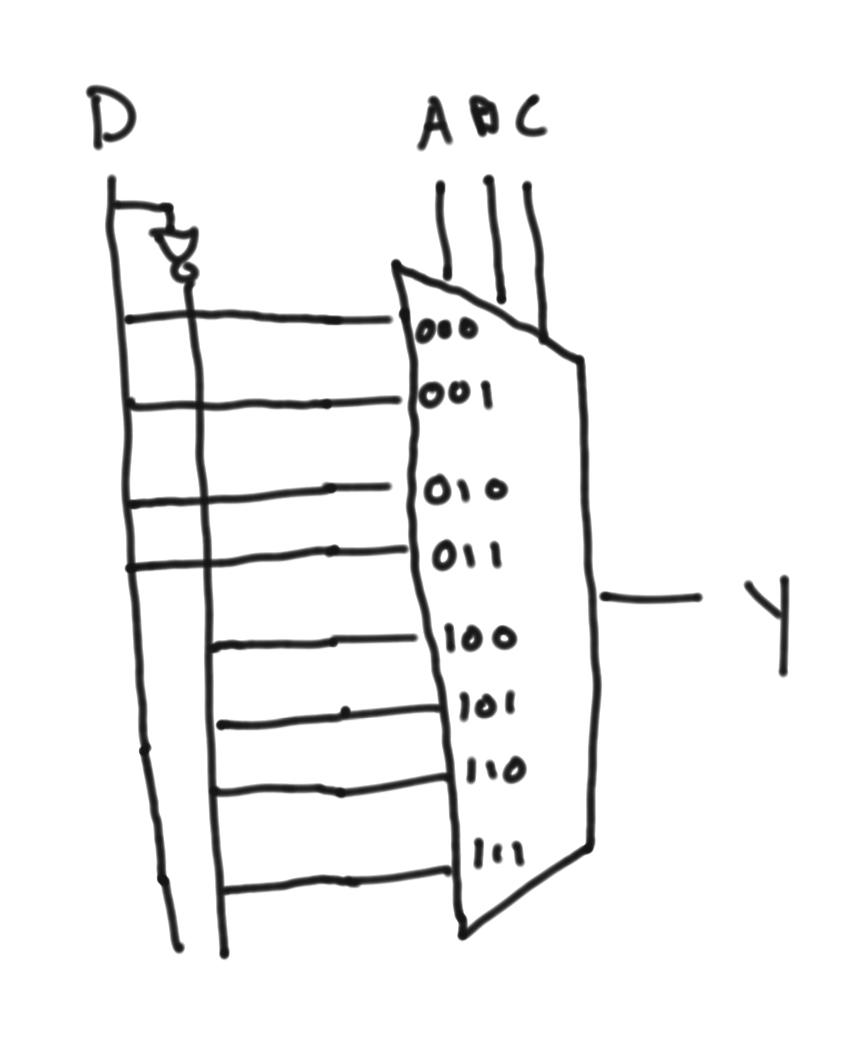 D A B C
000
001
010
011
100
101
110
111
Y